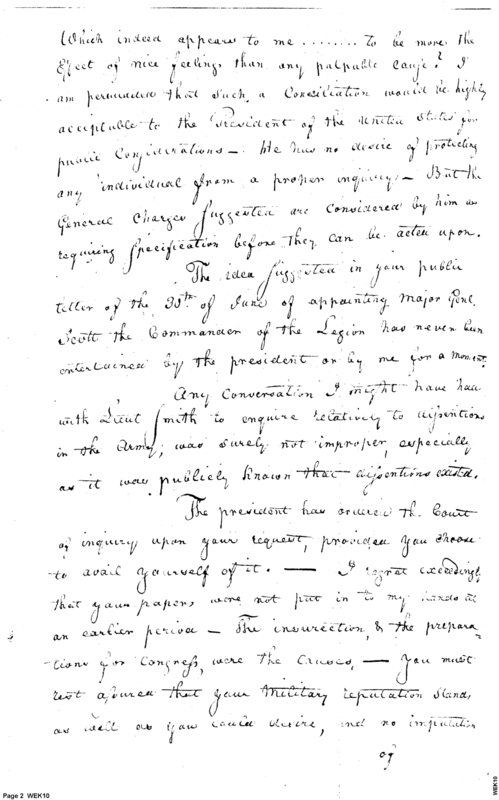 Which indeed appears to me ........ to be more the
Effect of nice feelings than any palpable cause? I
am persuaded that such a Conciliation would be highly
acceptable to the President of the United States for
public Considerations — He has no desire of protecting
any individual from a proper inquiry — But the
General Charges suggested are considered by him as
requiring specification before they can be acted upon.
The idea suggested in your public
letter of the 30th of June of appointing Major Genl.
Scott the Commander of the Legion has never been
entertained by the president or by me for a moment.
Any Conversation I might have had
with Lieut Smith to enquire relatively to dissentions
in the Army, was surely not improper, especially
as it was publicly known that dissentions existed.
The president has ordered the Court
of inquiry upon your request, provided you choose
to avail yourself of it. — I regret exceedingly
that your papers were not put in to my hands at
an earlier period — The insurrection, & the prepara-
tions for Congress, were the Causes, — You must
rest assured that your Military reputation stands
as well as you could desire, and no imputation
of
Page 2 WEK10
WEK10